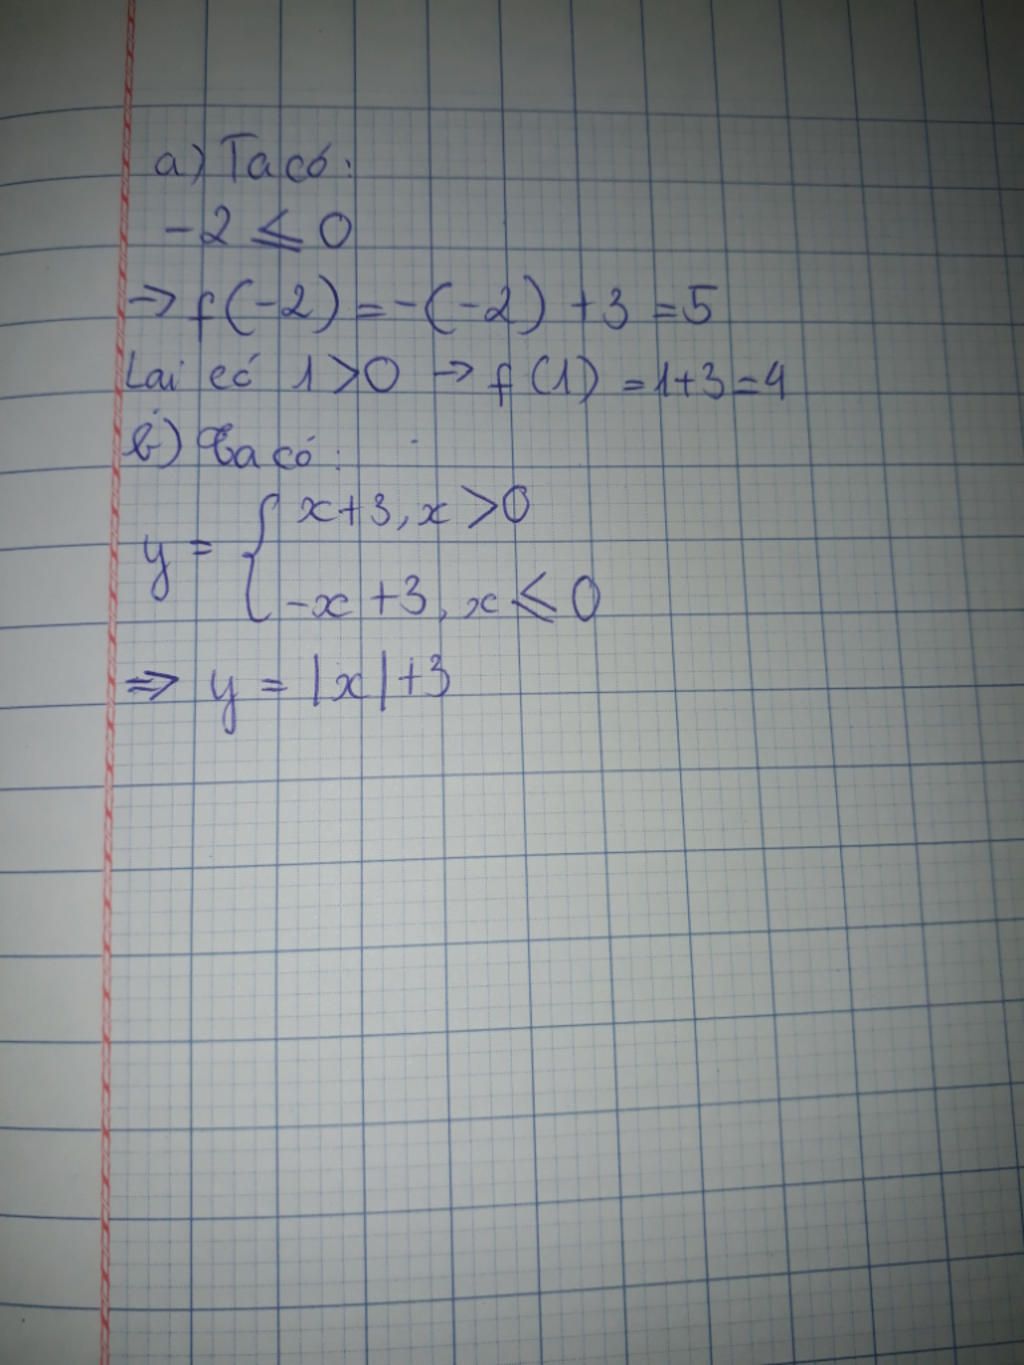 a) Ta có:
-2 ⩽ 0
→ f(-2) = -(-2) + 3 = 5
Lại có 1 > 0 → f(1) = 1+3 = 4
b) Ta có:
y = { x+3, x > 0
-x + 3, x ⩽ 0
⇒ y = |x| + 3